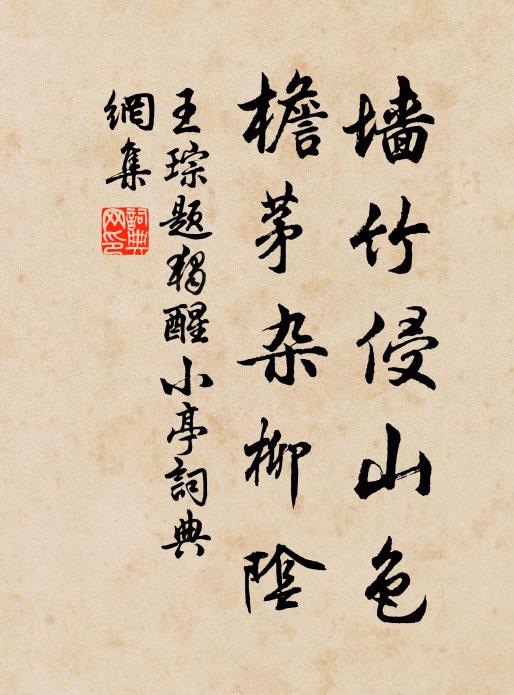 墙竹侵山色
檐茅杂柳陰
王琮题獨醒小亭詞典
網集
詞典
网印